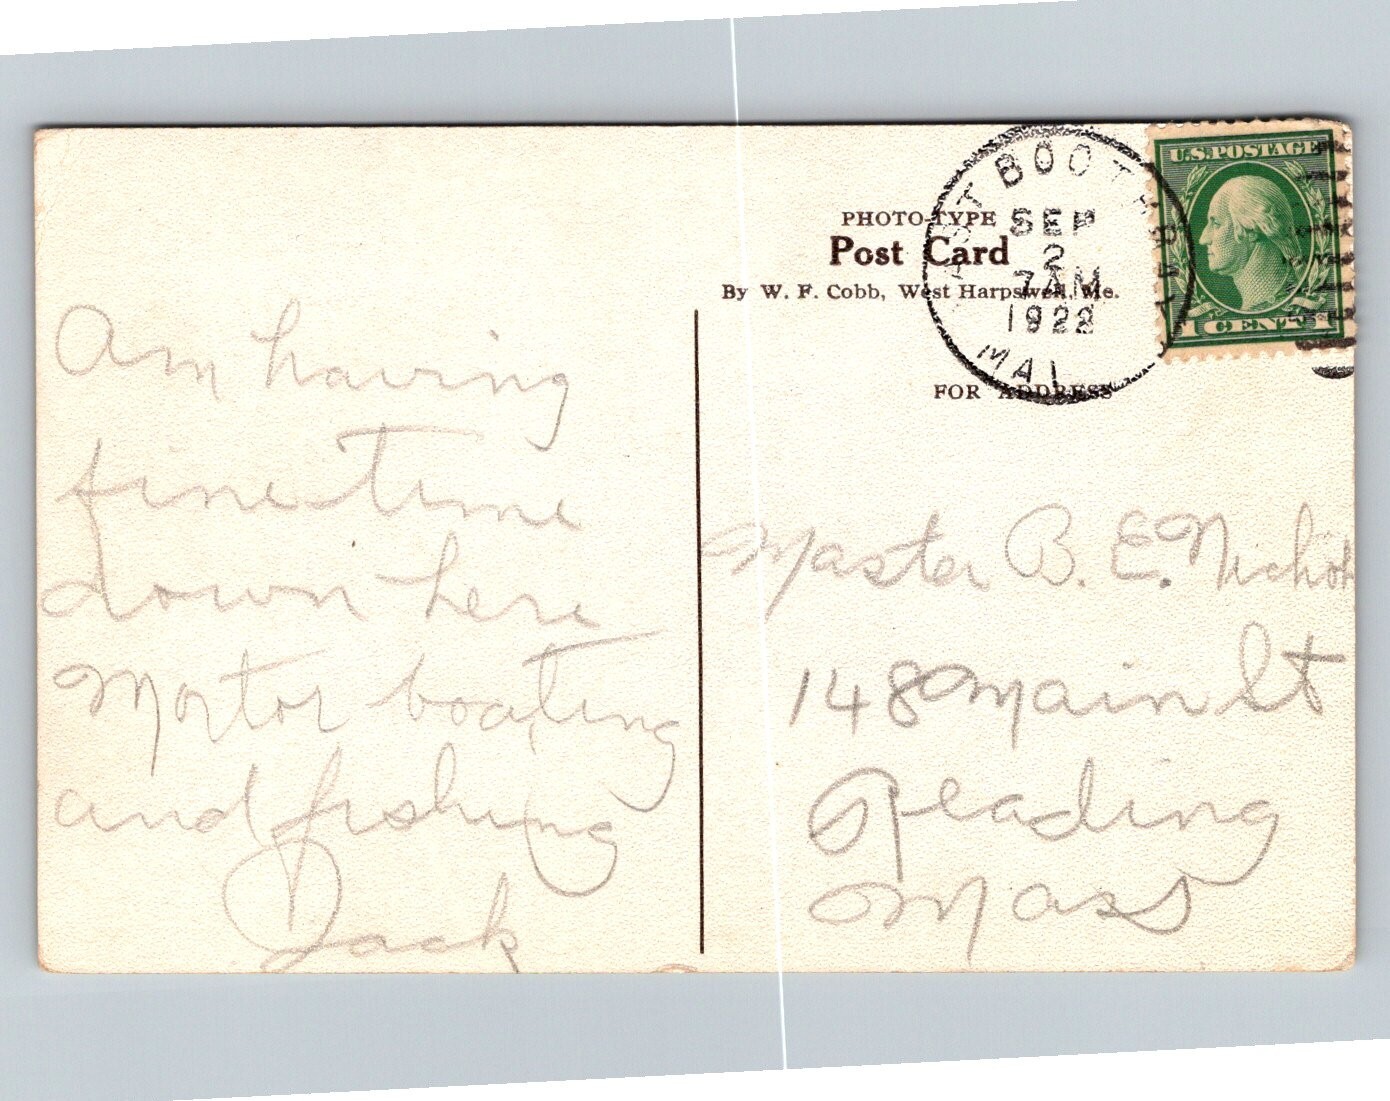 Am having
fine time
down here
Mortor boating
and fishing
Jack
PHOTO-TYPE
Post Card
By W. F. Cobb, West Harpswell, Me.
FOR ADDRESS
EAST BOOTHBAY
SEP
2
7 AM
1922
MAI
U.S. POSTAGE
1 CENT 1
Master B. E. Nichols
148 Main St
Reading
Mass